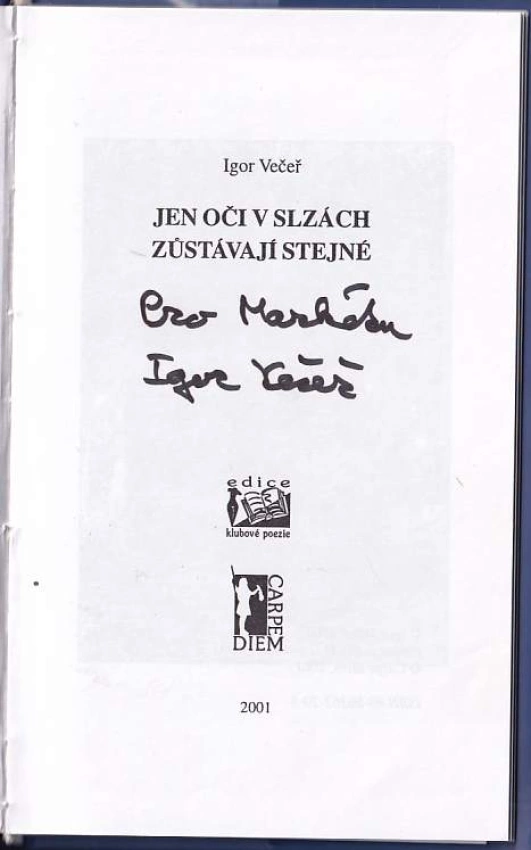 Igor Večeř
JEN OČI V SLZÁCH
ZŮSTÁVAJÍ STEJNÉ
Pro Markétu
Igor Večeř
edice
klubové poezie
CARPE
DIEM
2001